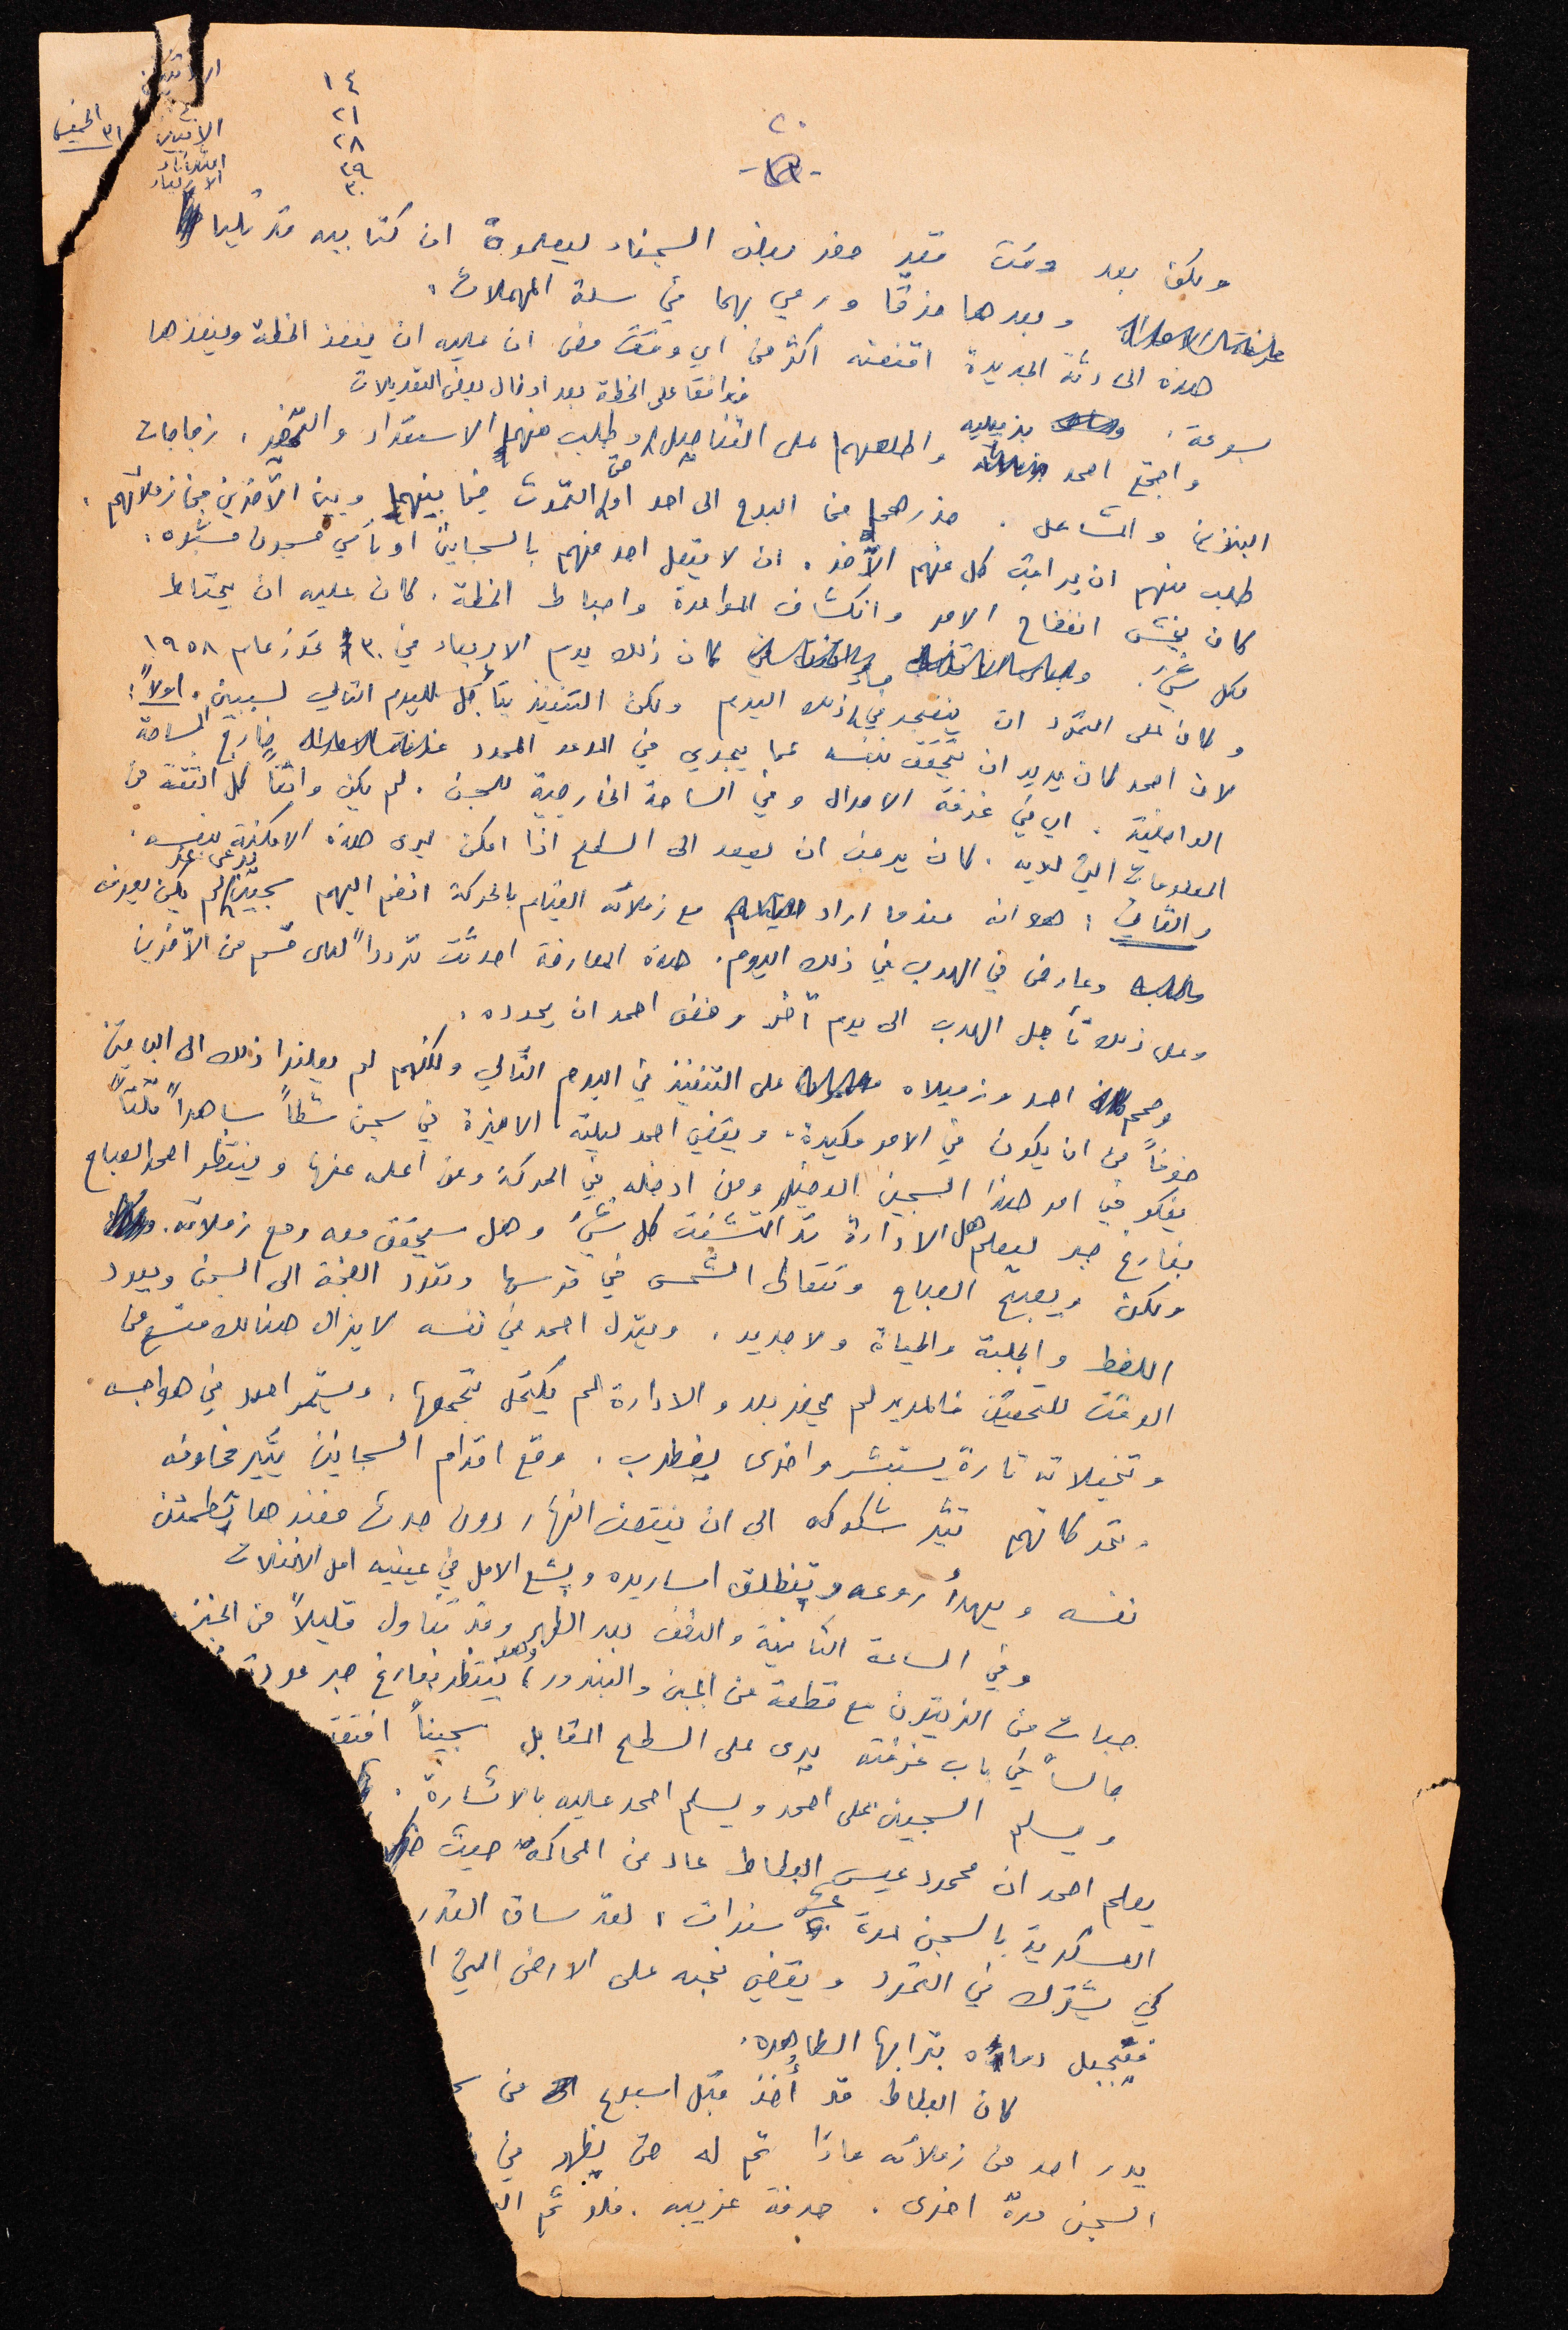 ١٤
الاثنين ٢١
الاثنين ٢٨
الثلاثاء ٢٩
الاربعاء ٣٠
الخميس ٣١
٢٠
ولكن بعد وقت قصير حضر بعض السجناء ليعلموه ان كتابيه قد
وبعدها مزقا ورمي بهما في سلة المهملات.
هذه الحادثة الجديدة اقنعته اكثر من اي وقت مضى ان عليه ان ينفذ الخطة وينفذها
فوافقا على الخطة بعد ادخال بعض التعديلات
بسرعة. واجتمع احمد بزميليه واطلعهم على التفاصيل وطلب منهما الاستعداد والتحضير. زجاجات
البنزين والمشاعل. حذرهما من البوح الى احد او حتى التحدث فيما بينهما وبين الآخرين من زملائهم.
طلب منهم ان يراقب كل منهم الآخر. ان لا يتصل احد منهم بالسجانين او بأي مسجون مشبوه.
كان يخشى افتضاح الامر وانكشاف المؤامرة واحباط الخطة. كان عليه ان يحتاط
لكل شيء. كان ذلك يوم الاربعاء في ٣٠ تموز عام ١٩٥٨
وكان على التمرد ان ينفجر في مساء ذلك اليوم ولكن التنفيذ يتأجل لليوم التالي لسببين. اولاً:
لان احمد كان يريد ان يتحقق بنفسه عما يجري في الموعد المحدد خارج الساحة
الداخلية. اي في غرفة الاعدال وفي الساحة الخارجية للسجن. لم يكن واثقاً كل الثقة من
المعلومات التي لديه. كان يرغب ان يصعد الى السطح اذا امكن ليرى هذه الامكنة بنفسه.
والثاني: هو انه عندما اراد مع زملائه القيام بالحركة انضم اليهم سجين لم يكن يعرفه
وعارض في الهرب في ذلك اليوم. هذه المعارضة احدثت تردداً لدى قسم من الآخرين
وعلى ذلك تأجل الهرب الى يوم آخر رفض احمد ان يحدده.
وصمم احمد وزميلاه على التنفيذ في اليوم التالي ولكنهم لم يعلنوا ذلك الى الباقين
خوفاً من ان يكون في الامر مكيدة. ويقضي احمد ليلته الاخيرة في سجن شطا ساهداً قلقاً
يفكر في امر هذا السجين الدخيل ومن ادخله في الحركة ومن اعلمه عنها وينتظر احمد الصباح
بفارغ صبر ليعلم هل الادارة قد اكتشفت كل شيء وهل سيحقق معه ومع زملائه.
ولكن ويصبح الصباح وتتعالى الشمس في قرصها وتعود الضجة الى السجن ويعود
اللغط والجلبة والحياة ولا جديد. ويقول احمد في نفسه لا يزال هنالك متسع من
الوقت للتحقيق فالمدير لم يحضر بعد والادارة لم يكتمل تجمعها. ويستمر احمد في هواجسه
وتخيلاته تارة يستبشر واخرى يضطرب. وقع اقدام السجانين يثير مخاوفه
وتحركاتهم تثير شكوكه الى ان ينتصف النهار دون حدث فعندها تطمئن
نفسه ويهدأ روعه وتنطلق اساريره ويشع الامل في عينيه امل الانفلات
وفي الساعة الثانية والنصف بعد الظهر وقد تناول قليلاً من الخبز
حبات من الزيتون مع قطعة من الجبن والبندورة، وهو ينتظر بفارغ صبر
جالساً في باب غرفته يرى على السطح المقابل سجيناً
ويسلم السجين على احمد ويسلم احمد عليه بالاشارة.
يعلم احمد ان محمود عيسى البطاط عاد من المحاكمة حيث
العسكرية بالسجن لمدة عشر سنوات. لقد ساق القدر
كي يشترك في التمرد ويقضي نحبه على الارض التي
فتجبل دماؤه بترابها الطاهرة.
كان البطاط قد أُخذ قبل اسبوع من
يدر احد من زملائه ماذا تم له حتى يظهر في
السجن مرة اخرى. صدفة غريبه. فلو تم